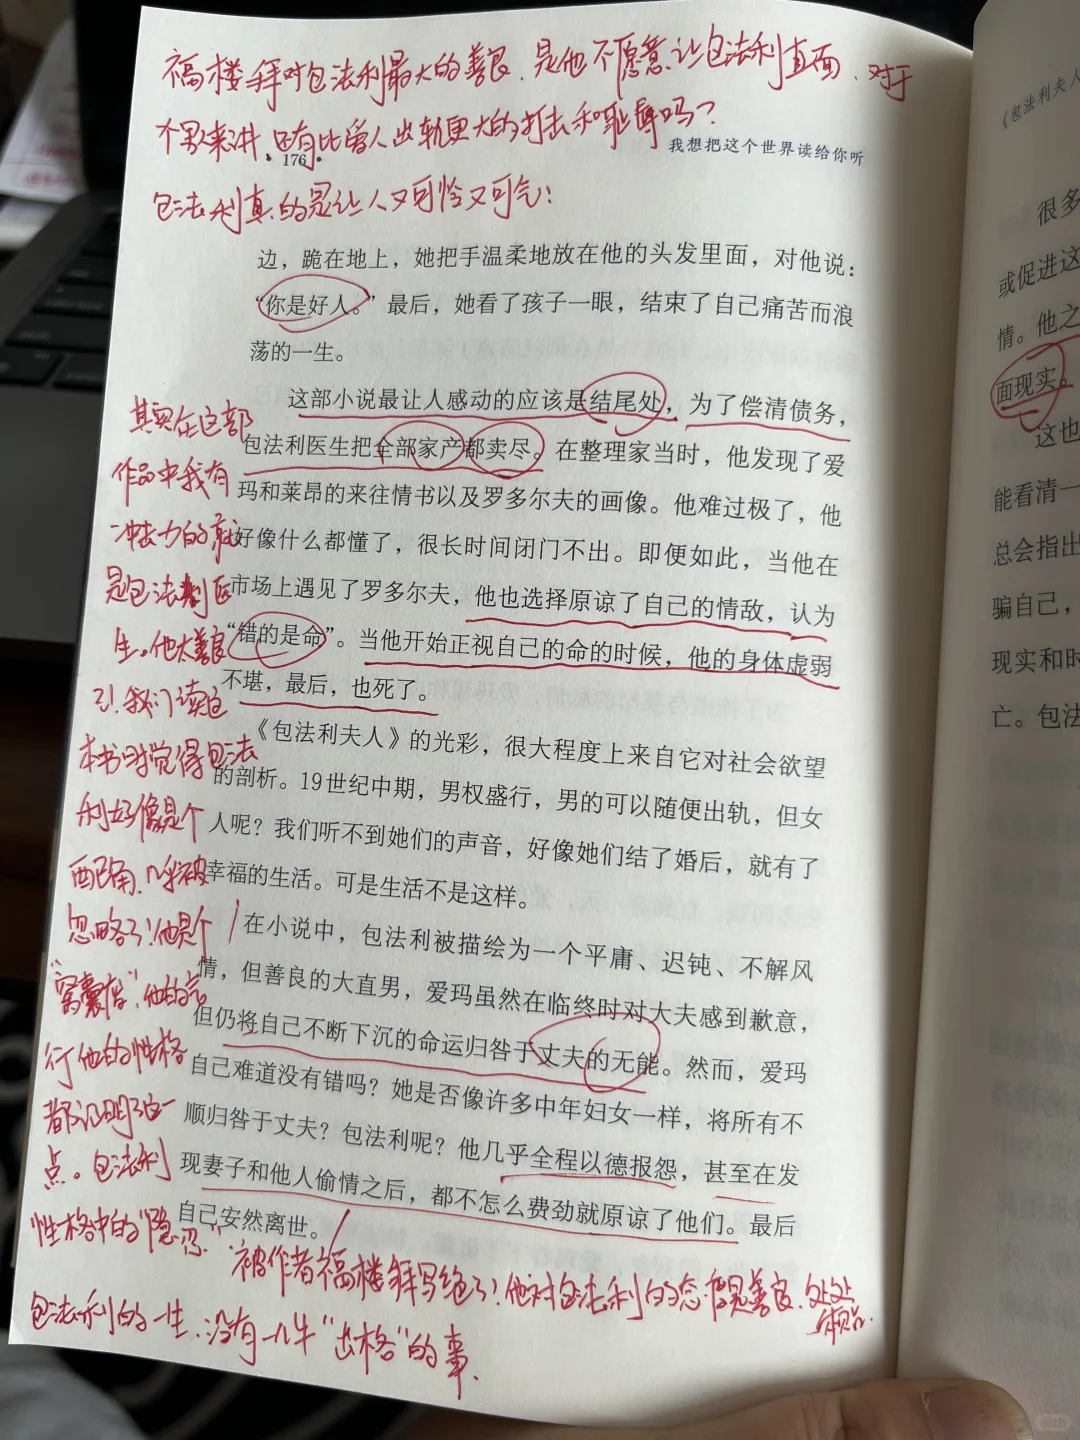 福楼拜对包法利最大的善良,是他不愿意让包法利直面,对于
个男人来讲,还有比爱人出轨更大的打击和耻辱吗?
• 176 •
我想把这个世界读给你听
包法利真的是让人又可怜又可气!
边,跪在地上,她把手温柔地放在他的头发里面,对他说:
“你是好人。”最后,她看了孩子一眼,结束了自己痛苦而浪
荡的一生。
这部小说最让人感动的应该是结尾处,为了偿清债务,
包法利医生把全部家产都卖尽。在整理家当时,他发现了爱
玛和莱昂的来往情书以及罗多尔夫的画像。他难过极了,他
好像什么都懂了,很长时间闭门不出。即便如此,当他在
市场上遇见了罗多尔夫,他也选择原谅了自己的情敌,认为
“错的是命”。当他开始正视自己的命的时候,他的身体虚弱
不堪,最后,也死了。
《包法利夫人》的光彩,很大程度上来自它对社会欲望
的剖析。19世纪中期,男权盛行,男的可以随便出轨,但女
人呢?我们听不到她们的声音,好像她们结了婚后,就有了
幸福的生活。可是生活不是这样。
在小说中,包法利被描绘为一个平庸、迟钝、不解风
情,但善良的大直男,爱玛虽然在临终时对大夫感到歉意,
但仍将自己不断下沉的命运归咎于丈夫的无能。然而,爱玛
自己难道没有错吗?她是否像许多中年妇女一样,将所有不
顺归咎于丈夫?包法利呢?他几乎全程以德报怨,甚至在发
现妻子和他人偷情之后,都不怎么费劲就原谅了他们。最后
自己安然离世。
其实在这部
作品中我有
冲击力的就
是包法利医
生。他太善良
了!我们读这
本书时觉得包法
利好像是个
配角,几乎被
忽略了!他是个
“窝囊废”,他的言
行他的性格
都证明了这一
点。包法利
性格中的“隐忍”
被作者福楼拜写绝了!他对包法利的态度是善良,处处
包法利的一生,没有一件“出格”的事.
《包法利夫人
很多
或促进这
情。他之
面现实。
这也
能看清一
总会指出
骗自己,
现实和时
亡。包法